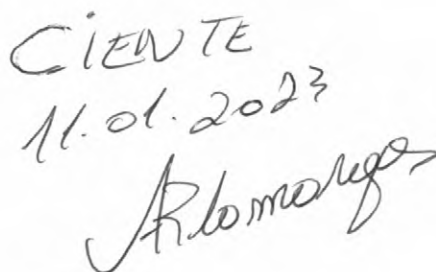 CIENTE
11.01.2023